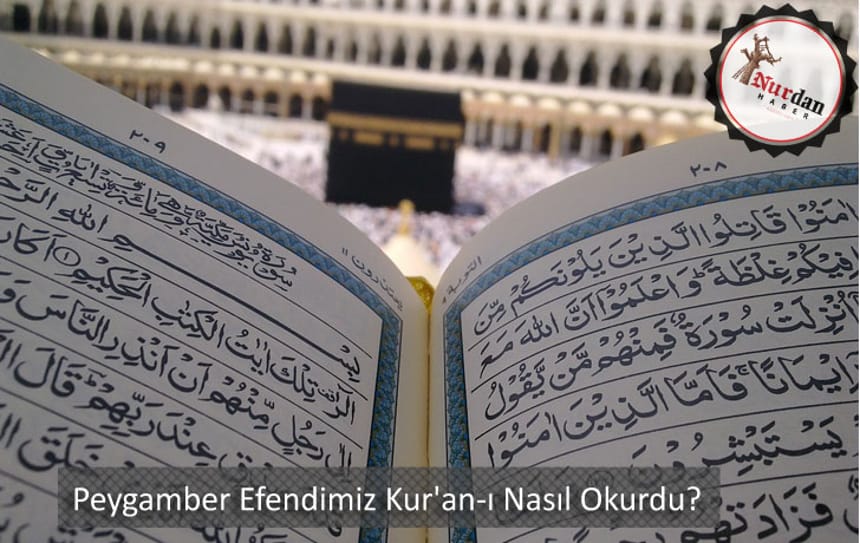 Nurdan
HABER
٢٠٨
التوبة ٩
اٰمَنُوا قَاتِلُوا الَّذ۪ينَ يَلُونَكُمْ مِنَ
ف۪يكُمْ غِلْظَةً وَاعْلَمُٓوا اَنَّ اللّٰهَ مَعَ
اُنْزِلَتْ سُورَةٌ فَمِنْهُمْ مَنْ يَقُولُ
ا۪يمَانًا فَاَمَّا الَّذ۪ينَ اٰمَنُوا
يَسْتَبْشِرُونَ
فَزَادَتْهُمْ
٢٠٩
يعتذرون ١١
بِسْمِ اللّٰهِ
الٓرٰ تِلْكَ اٰيَاتُ الْكِتَابِ الْحَك۪يمِ ١ اَكَانَ
رَجُلٍ مِنْهُمْ اَنْ اَنْذِرِ النَّاسَ
عِنْدَ رَبِّهِمْ قَالَ
خَلَقَ
Peygamber Efendimiz Kur'an-ı Nasıl Okurdu?